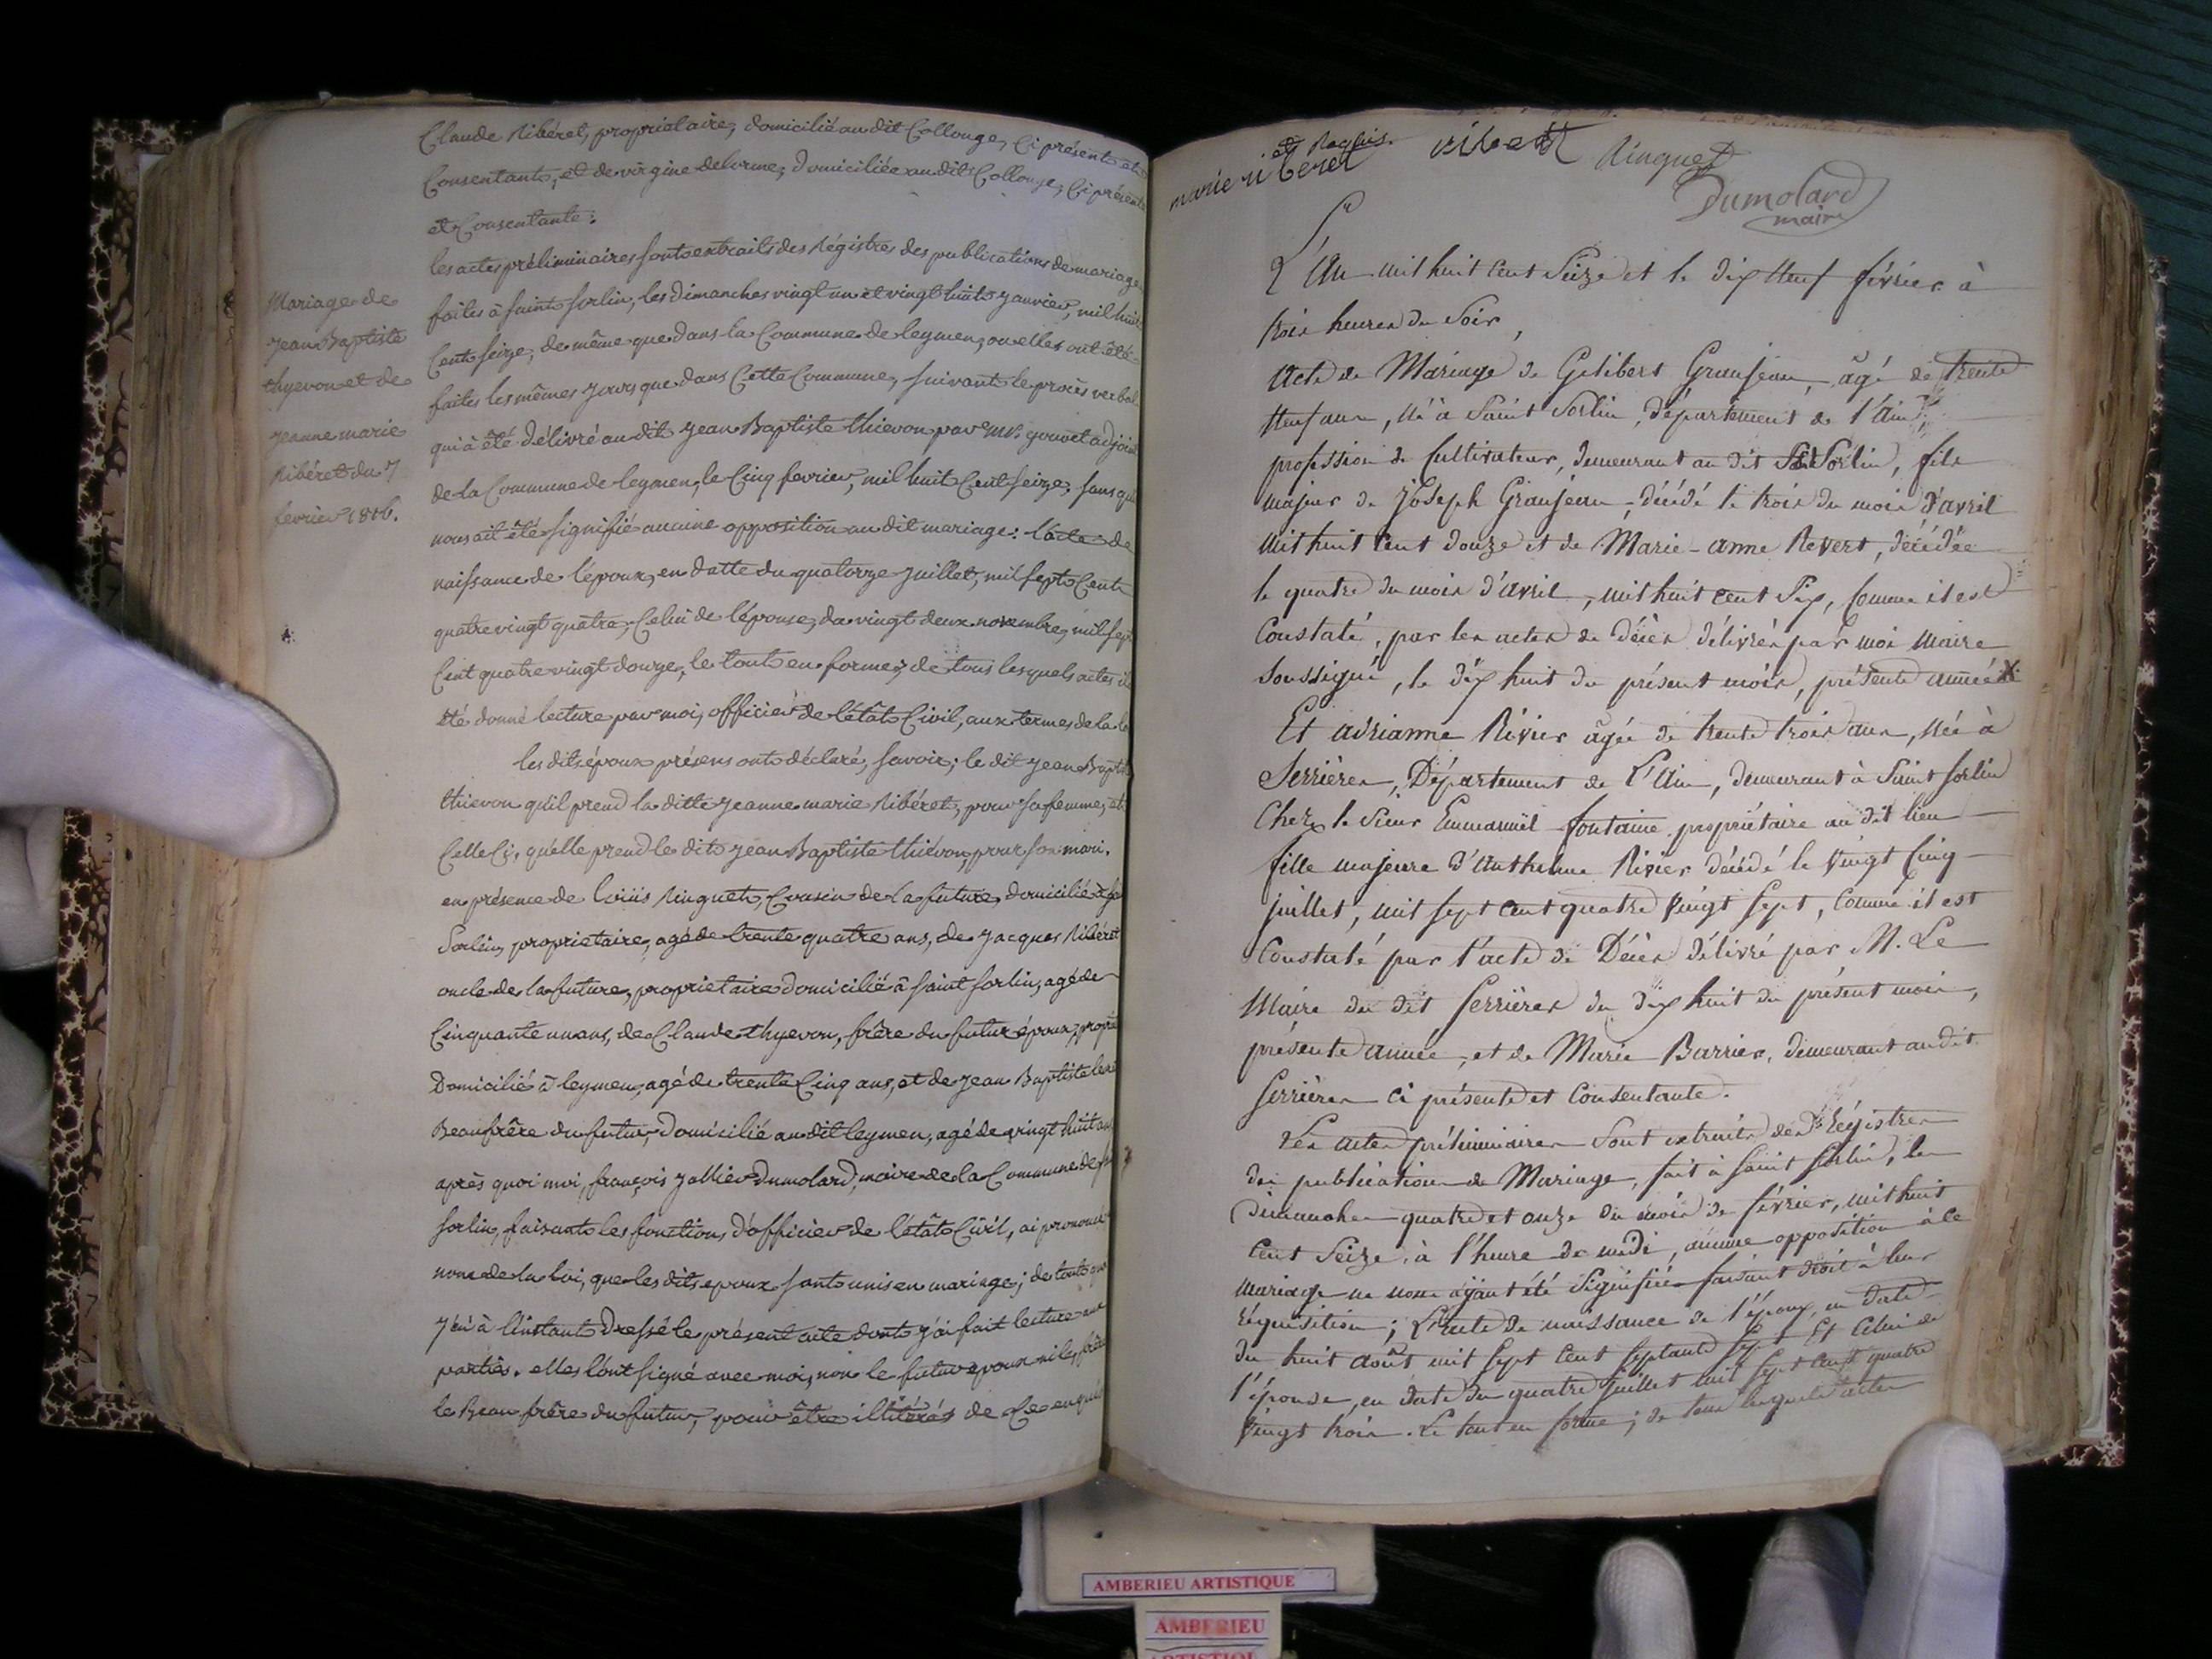 Claude Ribéret, propriétaire, domicilié au dit Collonge, Ci présent et
Consentant, et de virgine delorme, domiciliée au dit Collonge, Ci présente
et Consentante :
les actes préliminaires sont extraits des Régistres des publications de mariage
faites à saint sorlin, les dimanches vingt un et vingt huit janvier, mil huit
Cent seize, de même que dans la Commune de leymen, ou elles ont été
faites les mêmes jours que dans Cette Commune, suivant le procès verbal
qui à été délivré au dit jean Baptiste thievon par Mr. gouvet adjoint
de la Commune de leymen, le Cinq fevrier, mil huit Cent seize, sans qu'il
nous ait été signifié aucune opposition au dit mariage : l'acte de
naissance de l'époux, en datte du quatorze juillet, mil sept Cent
quatre vingt quatre, Celui de l'épouse, du vingt deux novembre, mil sept
Cent quatre vingt douze, le tout en forme, de tous lesquels actes il
été donné lecture par moi, officier de l'étât Civil, aux termes de la loi
les dits époux présens ont déclaré, savoir ; le dit jean Baptiste
thievon qu'il prend la ditte jeanne marie Ribéret, pour sa femme, et
Celle Ci, qu'elle prend le dit jean Baptiste thiévon, pour son mari.
en présence de loüis Ringuet, Cousin de la future, domicilié à st
Sorlin, proprietaire, agé de trente quatre ans, de jacques Ribéret
oncle de la future, proprietaire domicilié à saint sorlin, agé de
Cinquante un ans, de Claude thyevon, frère du futur époux, propre
Domicilié à leymen, agé de trente Cinq ans, et de jean Baptiste
Beaufrêre du futur, domicilié au dit leymen, agé de vingt huit ans
après quoi moi, françois jallier Dumolard, maire de la Commune de st
sorlin, faisant les fonctions d'officier de l'étât Civil, ai prononcé
nom de la loi, que les dits epoux sont unis en mariage ; de tout quoi
j'ai à l'instant Dressé le présent acte dont j'ai fait lecture aux
parties. elles l'ont signé avec moi, non le futur époux ni le frère
le Beau frêre du futur, pour être illitérés de Ce enquis
Mariage de
jean Baptiste
thyevon et de
jeanne marie
Ribéret du 7
fevrier 1816.
et Requis.
marie riberet
Ringuet
Dumolard
maire
L'An mil huit Cent Seize et le dix Neuf février à
trois heures du Soir,
Acte de Mariage de Gelibert Granjean, âgé de trente
Neuf ans, Né à Saint Sorlin, département de l'Ain
profession de Cultivateur, demeurant au dit St Sorlin, fils
majeur de Joseph Granjean, décédé le trois du mois d'avril
mil huit Cent Douze et de Marie-Anne Revert, décédée
le quatre du mois d'avril, mil huit cent Six, Comme il est
Constaté, par les actes de Décès délivrés par moi Maire
Soussigné, le dix huit du présent mois, présente année
Et adrianne Rivier âgée de trente trois ans, Née à
Serrières, Département de L'Ain, demeurant à Saint Sorlin
Chez le Sieur Emmanuël fontaine propriétaire au dit lieu
fille majeure d'Anthelme Rivier décédé le Vingt Cinq
juillet, mil sept Cent quatre Vingt Sept, Comme il est
Constaté par l'acte de Décès délivré par M. Le
Maire du dit Serrières du dix huit du présent mois,
présente année, et de Marie Barrier, demeurant au dit
Serrières ci présente et Consentante.
Les actes préliminaires Sont extraits des Régistres
des publications de Mariage, fait à Saint Sorlin, les
Dimanches quatre et onze du mois de février, mil huit
Cent Seize, à l'heure de midi, aucune opposition à ce
mariage ne nous ayant été Signifiée faisant droit à leur
réquisition ; L'acte de naissance de l'époux, en date
du huit août mil Sept Cent Septante Sept Et Celui de
l'épouse, en date du quatre juillet mil Sept Cent quatre
Vingt trois. Le tout en forme ; de tous lesquels actes
AMBERIEU ARTISTIQUE
AMBERIEU
ARTISTIQUE